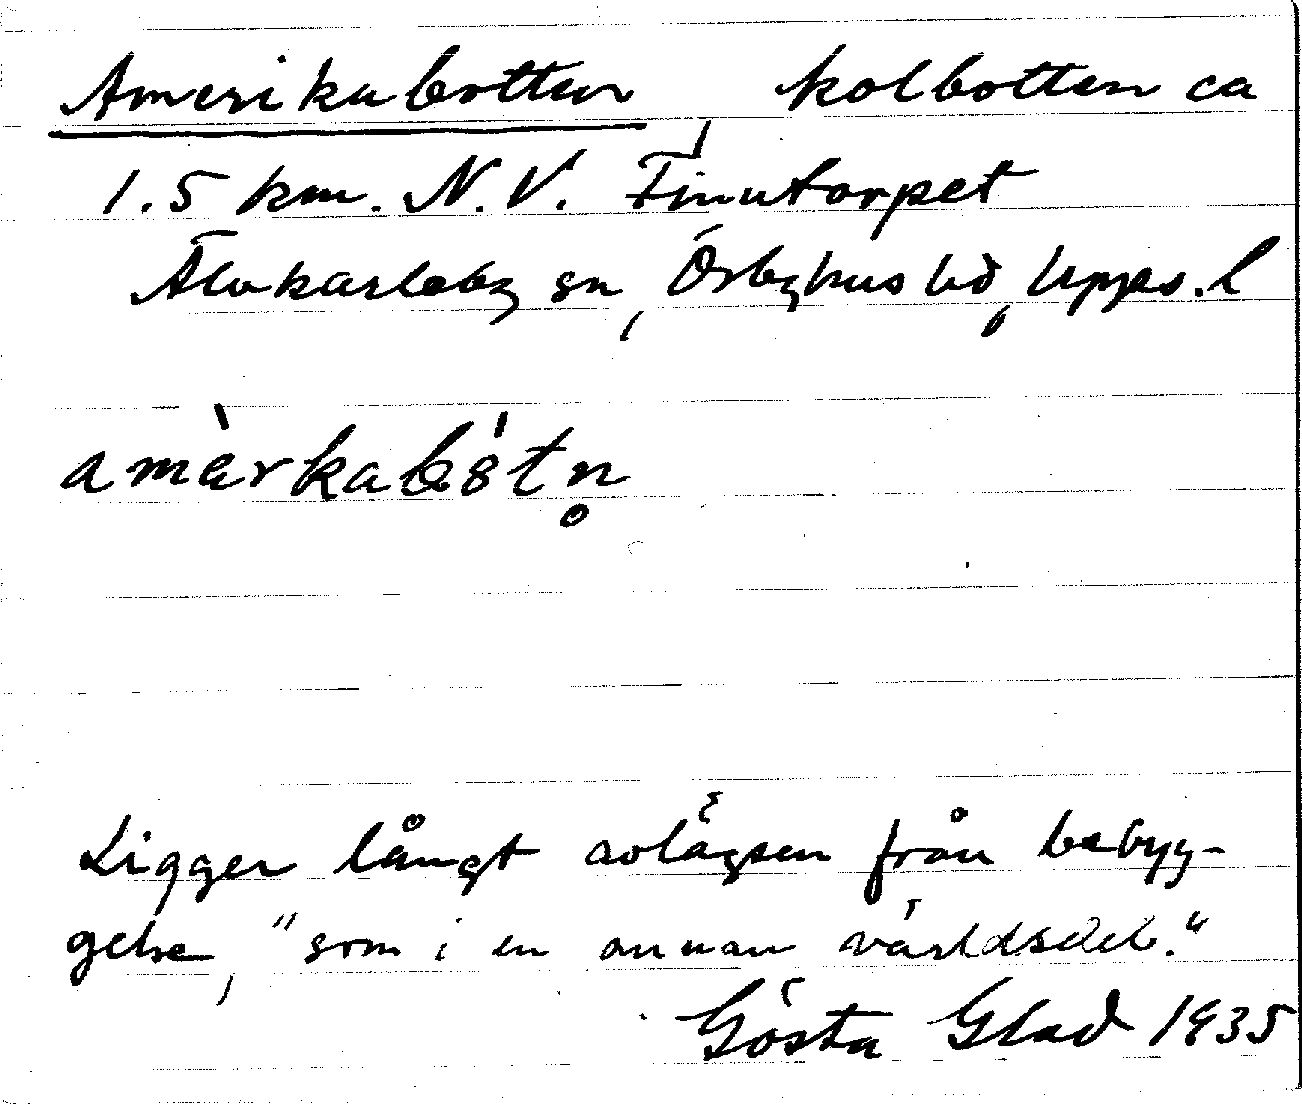 Amerikabotten kolbotten ca
1.5 km. N.V. Finntorpet
Älvkarleby sn, Örbyhus hd, Upps. l
amèrkabȯ́tn̥
Ligger långt avlägsen från bebyg-
gelse, "som i en annan världsdel."
Gösta Glad 1935